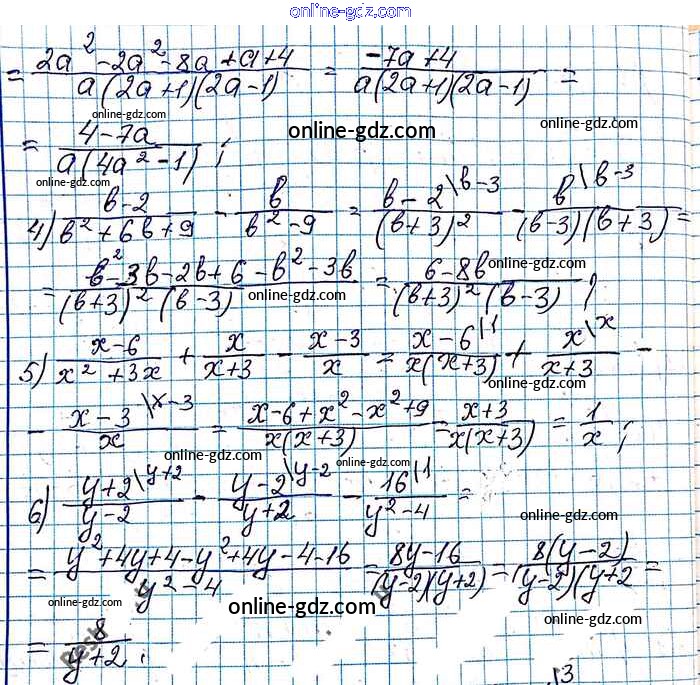 online-gdz.com
= (2a² - 2a² - 8a + a + 4)/(a(2a+1)(2a-1)) = (-7a+4)/(a(2a+1)(2a-1)) =
online-gdz.com online-gdz.com online-gdz.com
= (4-7a)/(a(4a²-1)) ;
online-gdz.com
4) (в-2)/(в²+6в+9) - в/(в²-9) = (в-2\в-3)/((в+3)²) - (в\в-3)/((в-3)(в+3)) =
= (в²-3в-2в+6-в²-3в)/((в+3)²(в-3)) = (6-8в)/((в+3)²(в-3)) ;
online-gdz.com online-gdz.com
5) (x-6)/(x²+3x) + x/(x+3) - (x-3)/x = (x-6\1)/(x(x+3)) + (x\x)/(x+3) -
online-gdz.com
- (x-3\x-3)/x = (x-6+x²-x²+9)/(x(x+3)) = (x+3)/(x(x+3)) = 1/x ;
online-gdz.com online-gdz.com
6) (y+2\y+2)/(y-2) - (y-2\y-2)/(y+2) - (16\1)/(y²-4) =
online-gdz.com
= (y²+4y+4-y²+4y-4-16)/(y²-4) = (8y-16)/((y-2)(y+2)) = (8(y-2))/((y-2)(y+2 =
online-gdz.com online-gdz.com online-gdz.com
= 8/(y+2) .